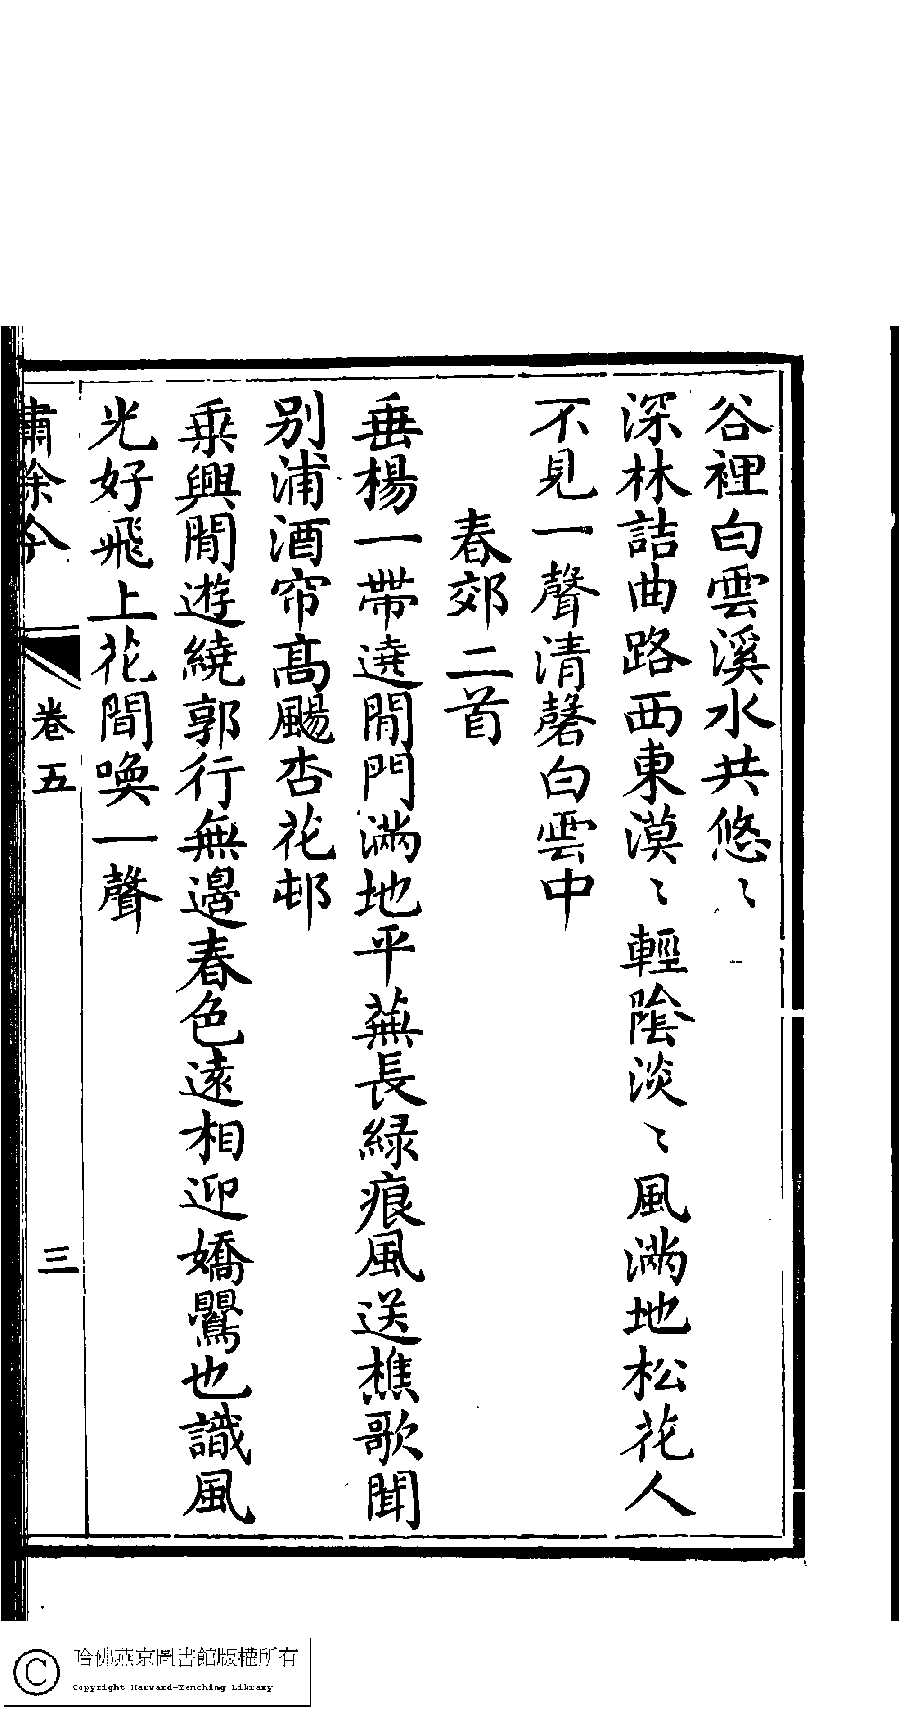 谷裡白雲溪水共悠〻
深林詰曲路西東漠〻輕陰淡〻風滿地松花人
不見一聲清磬白雲中
春郊二首
垂楊一帶遶閒門滿地平蕪長綠痕風送樵歌聞
別浦酒帘高颺杏花邨
乘興閒遊繞郭行無邊春色遠相迎嬌鸎也識風
光好飛上花間喚一聲
繡餘吟
卷五
三
哈佛燕京圖書館版權所有
Copyright Harvard-Yenching Library